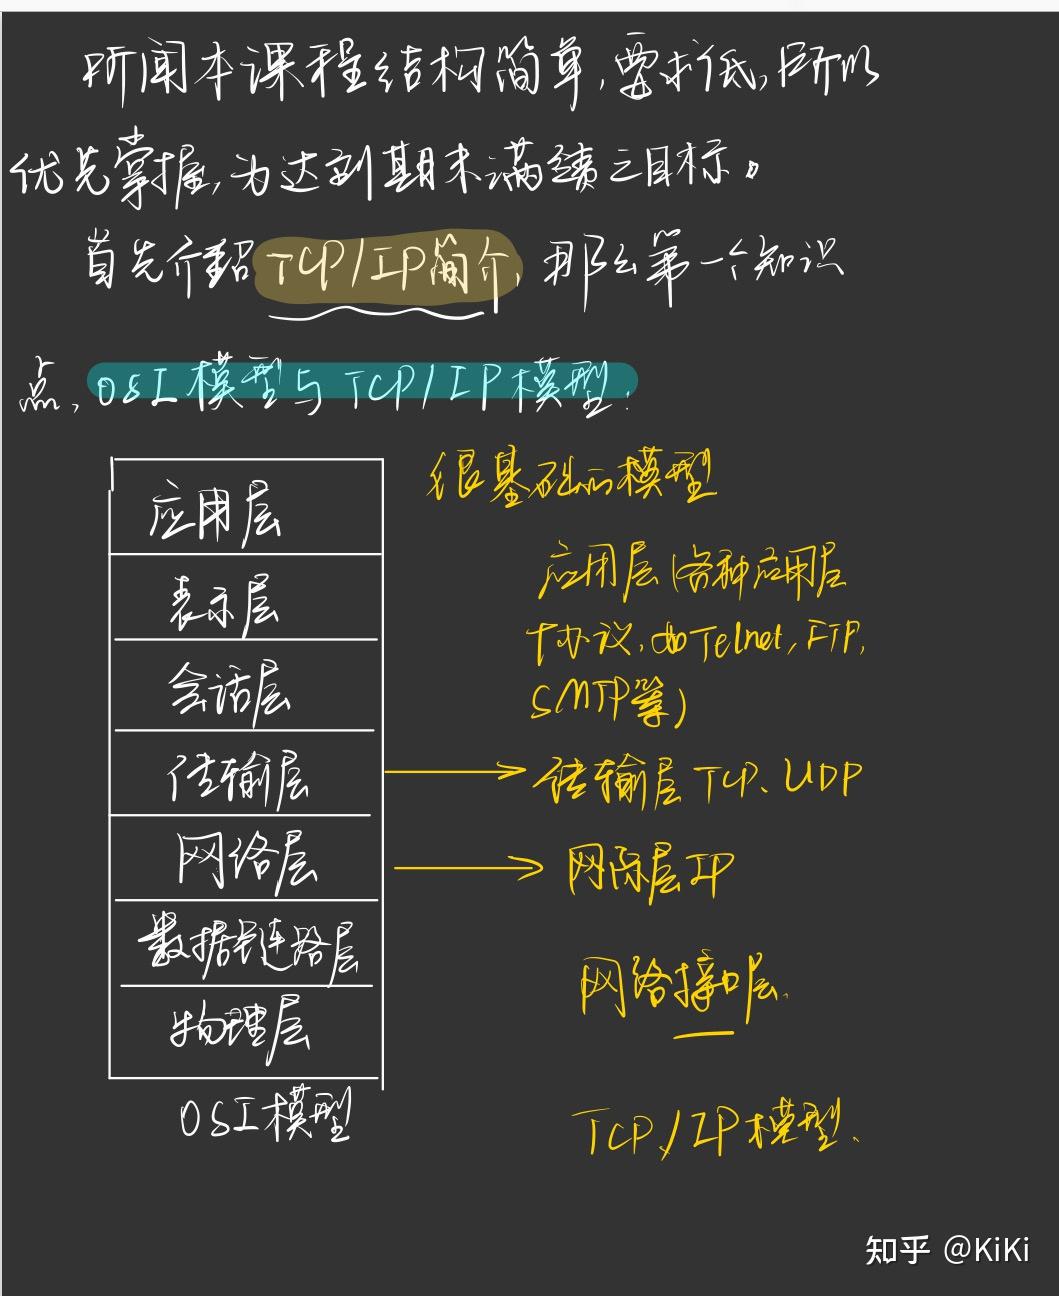 所闻本课程结构简单,要求低,所以
优先掌握,为达到期末满绩之目标。
首先介绍TCP/IP简介,那么第一个知识
点,OSI模型与TCP/IP模型:
很基础的模型
应用层
表示层
会话层
传输层
网络层
数据链路层
物理层
OSI模型
应用层(各种应用层
协议,如Telnet,FTP,
SMTP等)
传输层TCP、UDP
网际层IP
网络接口层.
TCP/IP模型.
知乎 @KiKi